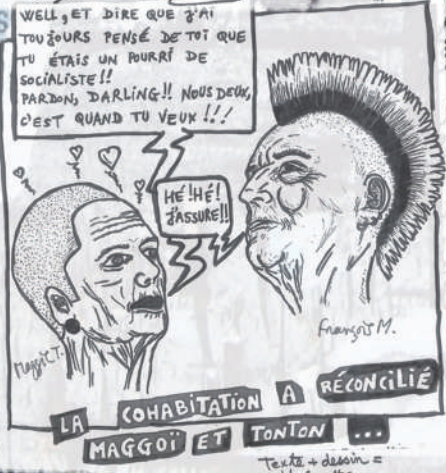 WELL, ET DIRE QUE J'AI
TOUJOURS PENSÉ DE TOI QUE
TU ÉTAIS UN POURRI DE
SOCIALISTE!!
PARDON, DARLING!! NOUS DEUX,
C'EST QUAND TU VEUX!!!
HÉ!HÉ!
J'ASSURE!!
Maggie T.
François M.
LA COHABITATION A RÉCONCILIÉ
MAGGOÏ ET TONTON ...
Texte + dessin =